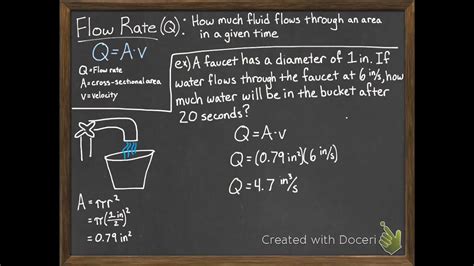 Flow Rate (Q): How much fluid flows through an area
in a given time
Q=A·v
Q=Flow rate
A=cross-sectional area
v=velocity
ex) A faucet has a diameter of 1 in. If
water flows through the faucet at 6 in/s, how
much water will be in the bucket after
20 seconds?
Q=A·v
Q=(0.79in²)(6 in/s)
Q=4.7 in³/s
A=πr²
=π(1in/2)²
=0.79 in²
Created with Doceri